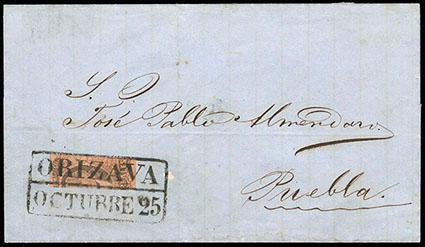 S. D.
José Pablo Almendaro.
Puebla.
ORIZAVA
OCTUBRE 25